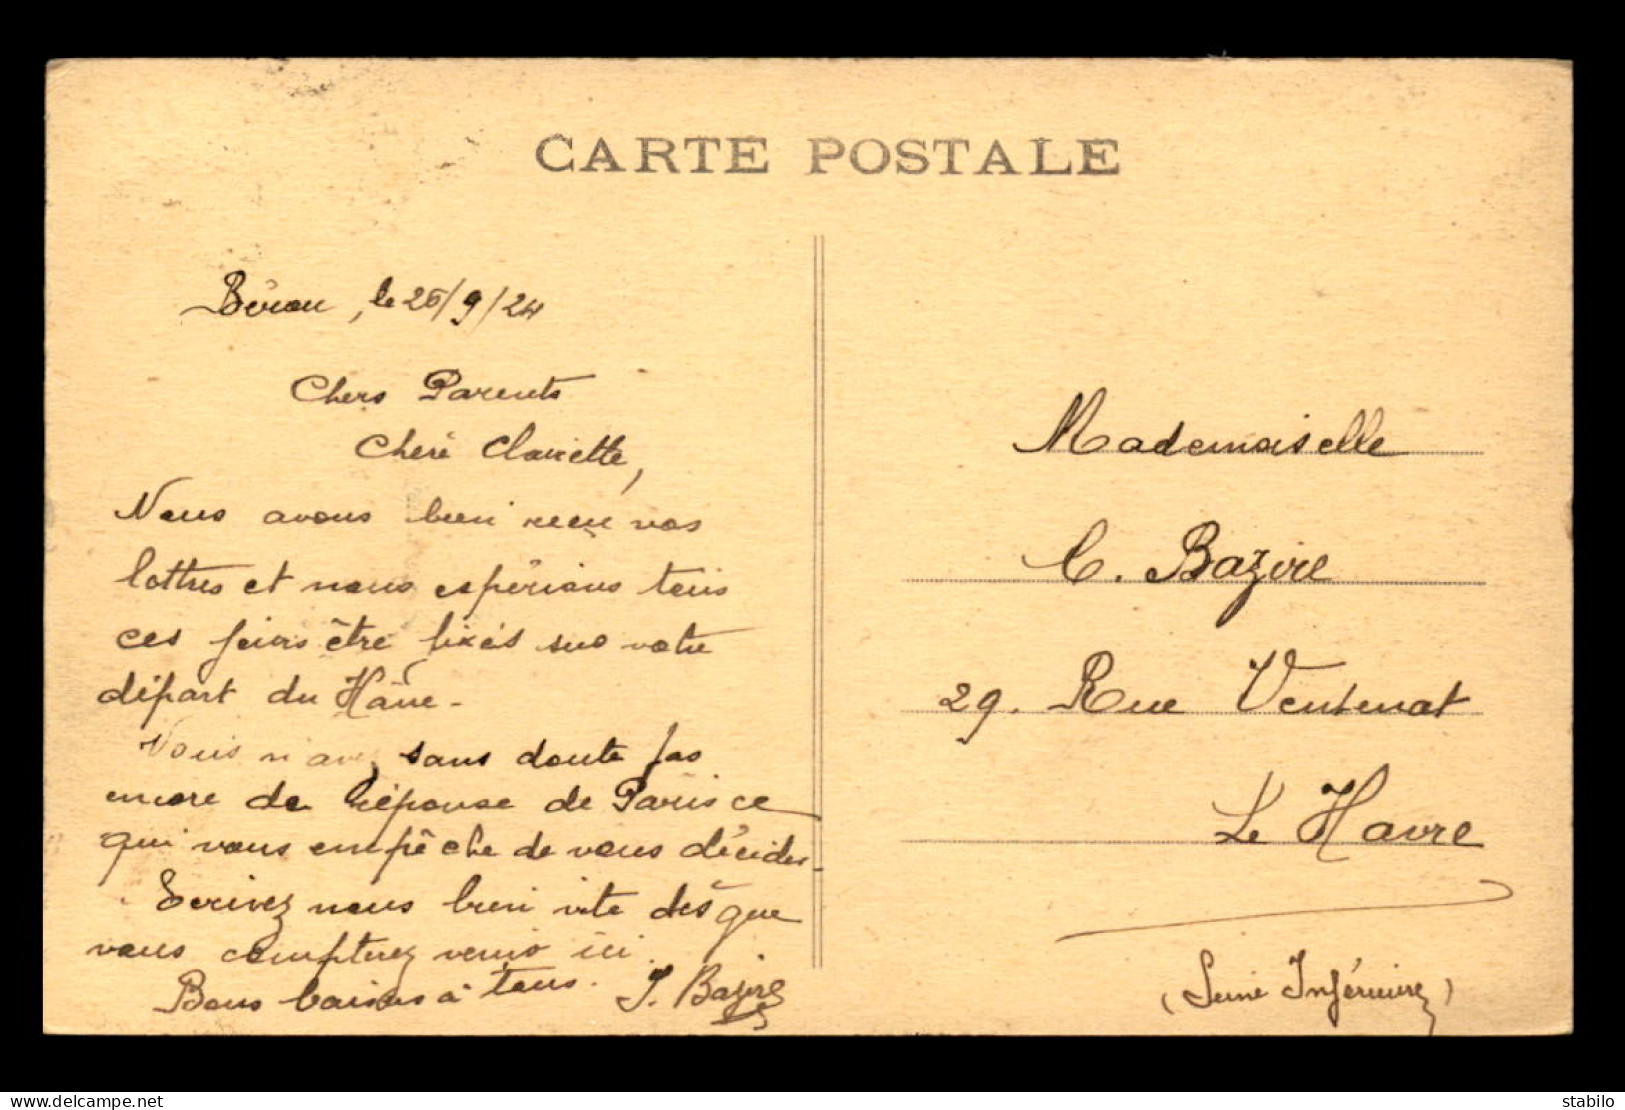 CARTE POSTALE
le 26/9/24
Chers Parents
Chère Clairette,
Nous avons bien reçu vos
lettres et nous espérions tous
ces jours être fixés sur votre
départ du Hâvre -
Vous n'avez sans doute pas
encore de Réponse de Paris ce
qui vous empêche de vous décider -
Ecrivez nous bien vite dès que
vous compterez venir ici.
Bons baisers à tous. J. Bazire
Mademoiselle
C. Bazire
29. Rue Ventenat
Le Havre
(Seine Inférieure)
www.delcampe.net
stabilo